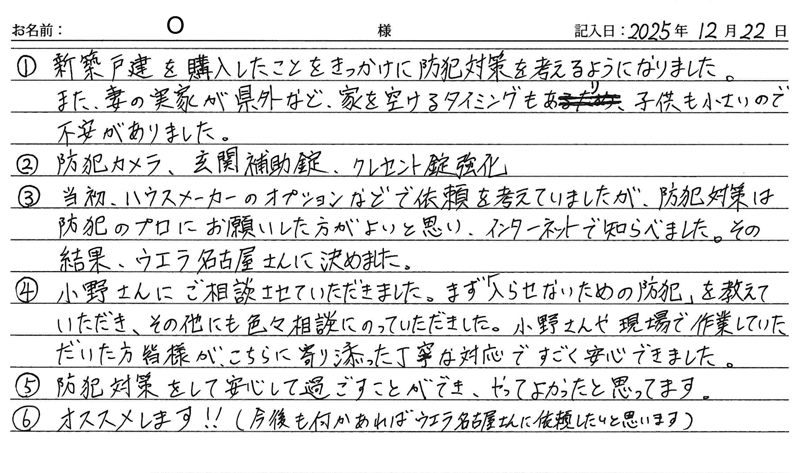 お名前： O 様 記入日：2025年 12月 22日
① 新築戸建を購入したことをきっかけに防犯対策を考えるようになりました。
また、妻の実家が県外など、家を空けるタイミングもあり、子供も小さいので
不安がありました。
② 防犯カメラ、玄関補助錠、クレセント錠強化
③ 当初、ハウスメーカーのオプションなどで依頼を考えていましたが、防犯対策は
防犯のプロにお願いした方がよいと思い、インターネットで知らべました。その
結果、ウエラ名古屋さんに決めました。
④ 小野さんにご相談させていただきました。まず「入らせないための防犯」を教えて
いただき、その他にも色々相談にのっていただきました。小野さんや現場で作業していた
だいた方皆様が、こちらに寄り添った丁寧な対応ですごく安心できました。
⑤ 防犯対策をして安心して過ごすことができ、やってよかったと思ってます。
⑥ オススメします!!（今後も何かあればウエラ名古屋さんに依頼したいと思います）